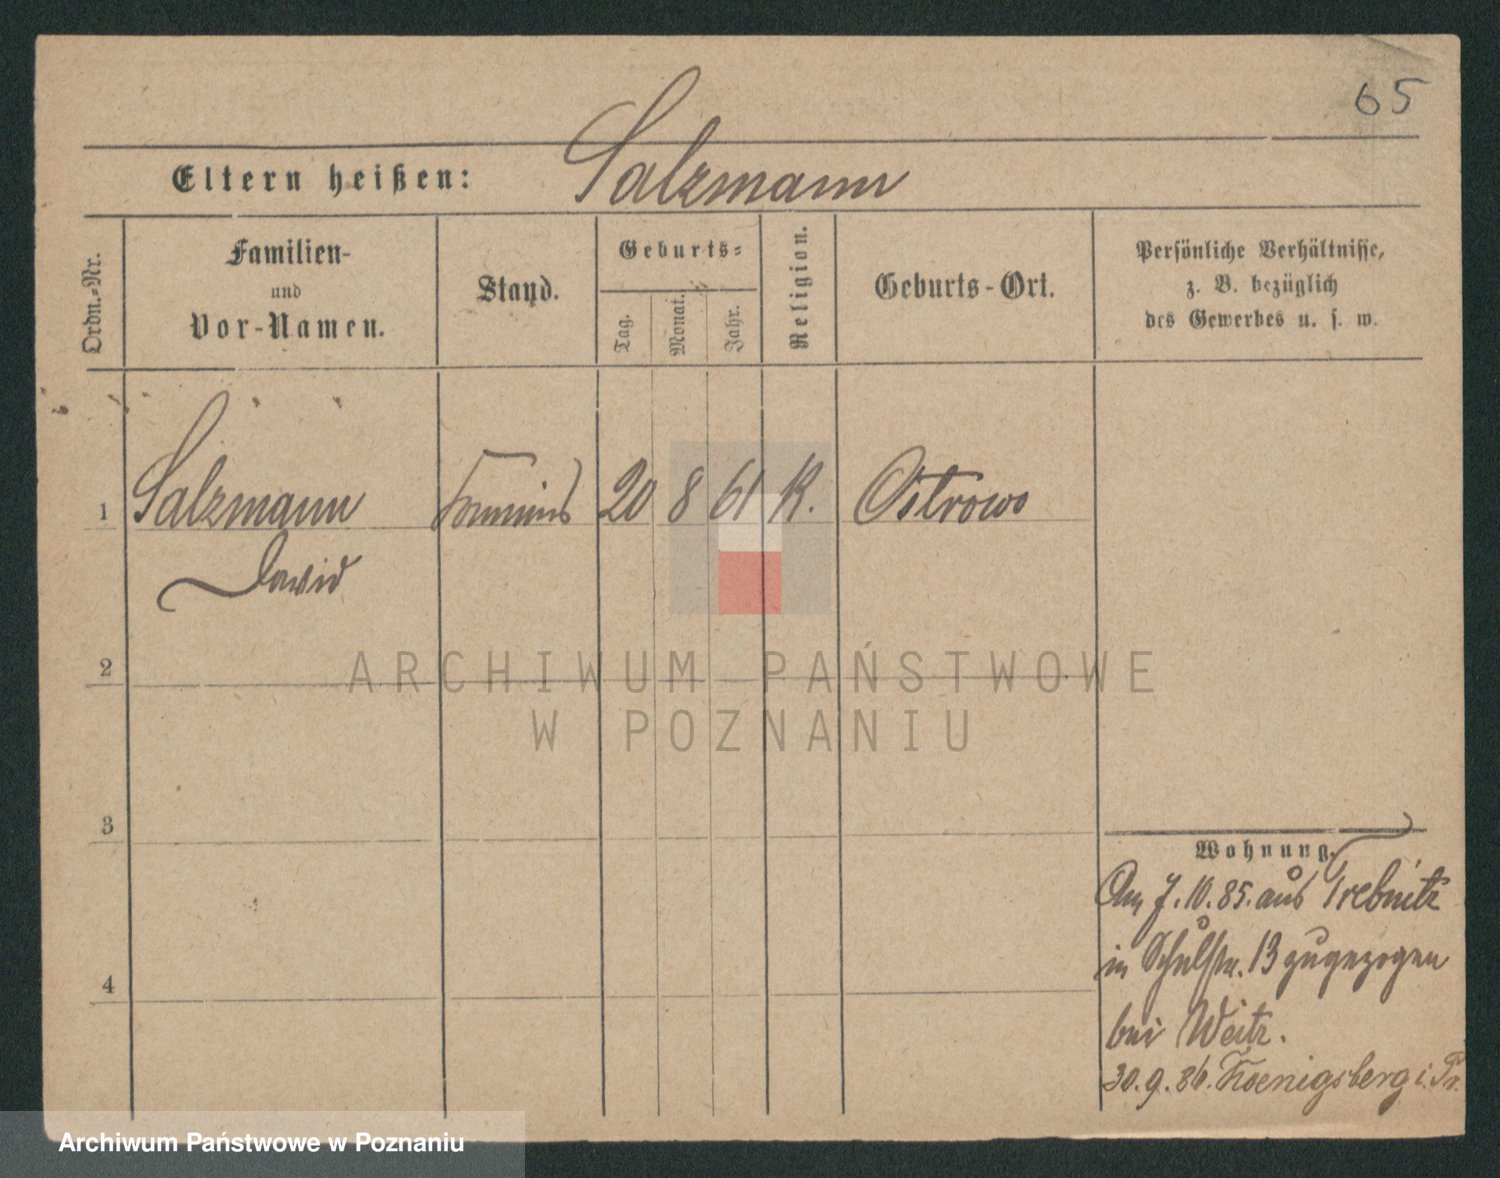 65
Eltern heißen: Salzmann
Ordn.-Nr.
Familien-
und
Vor-Namen.
Stand.
Geburts-
Tag.
Monat.
Jahr.
Religion.
Geburts-Ort.
Persönliche Verhältnisse,
z. B. bezüglich
des Gewerbes u. s. w.
1 Salzmann Commis 20 8 61 K. Ostrowo
David
2
3
4
Wohnung.
Am 7.10.85. aus Trebnitz
in Schulstr. 13 zugezogen
bei Weitz.
30.9.86. Koenigsberg i. Pr.
ARCHIWUM PAŃSTWOWE
W POZNANIU
Archiwum Państwowe w Poznaniu